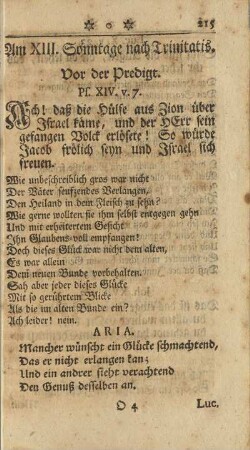 * o * 215
Am XIII. Sonntage nach Trinitatis.
Vor der Predigt.
Pſ. XIV. v. 7.
Ach! daß die Hülfe aus Zion über
Iſrael käme, und der HErr ſein
gefangen Volck erlöſete! So würde
Jacob frölich ſeyn und Iſrael ſich
freuen.
Wie unbeſchreiblich gros war nicht
Der Väter ſeufzendes Verlangen,
Den Heiland in dem Fleiſch zu ſehn?
Wie gerne wollten ſie ihm ſelbſt entgegen gehn
Und mit erheitertem Geſicht
Ihn Glaubens-voll empfangen!
Doch dieſes Glück war nicht dem alten,
Es war allein
Dem neuen Bunde vorbehalten.
Sah aber jeder dieſes Glücke
Mit ſo gerührtem Blicke
Als die im alten Bunde ein?
Ach leider! nein.
ARIA.
Mancher wünſcht ein Glücke ſchmachtend,
Das er nicht erlangen kan;
Und ein andrer ſieht verachtend
Den Genuß deſſelben an.
O 4 Luc.